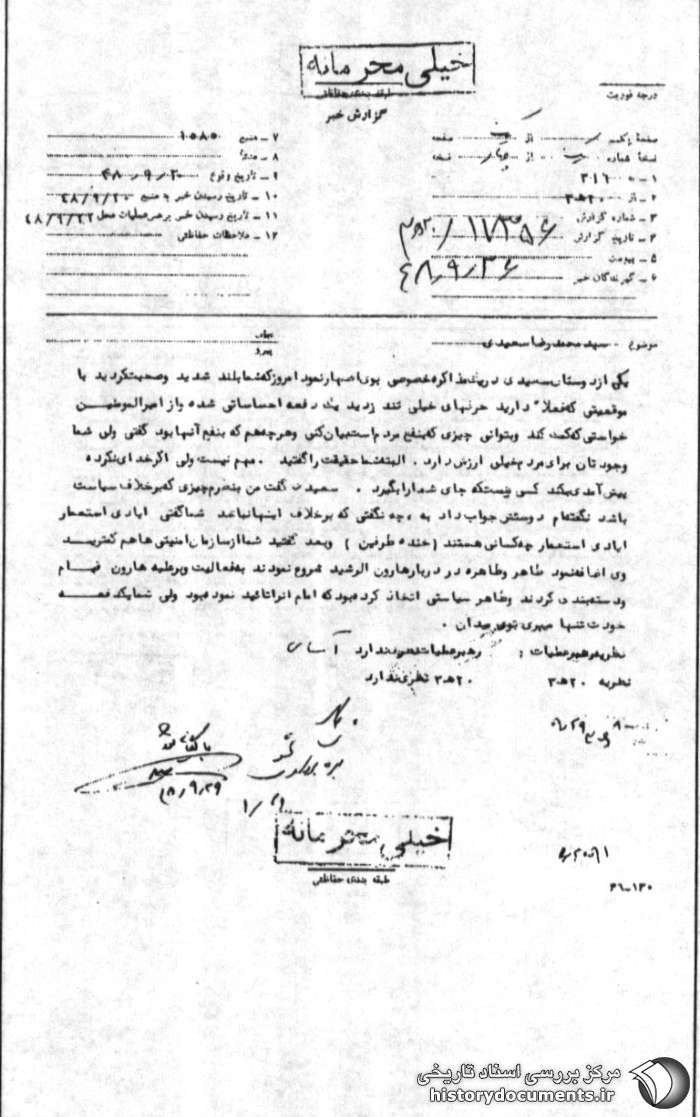 خیلی محرمانه
طبقه بندی حفاظتی
گزارش خبر
درجه فوریت
صفحه یک از صفحه
نسخه شماره از نسخه
۱ – به ۳۱۶
۲ – از ۲۰هـ۳
۳ – شماره گزارش
۴ – تاریخ گزارش
۵ – پیوست
۶ – گیرندگان خبر
۷ – منبع ۱۰۵۸۰
۸ – منشأ
۹ – تاریخ وقوع ۴۸٫۹٫۲۰
۱۰ – تاریخ رسیدن خبر به منبع ۴۸/۹/۲۰
۱۱ – تاریخ رسیدن خبر به رهبر عملیات محل ۴۸/۹/۲۲
۱۲ – ملاحظات حفاظتی
موضوع سید محمد رضا سعیدی
پیرو
یکی از دوستان سعیدی در یک مذاکره خصوصی بوی اظهار نمود امروز که شما بلند شدید و صحبت کردید با
موقعیتی که فعلاً دارید حرفهای خیلی تند زدید یک دفعه احساساتی شده و از امیرالمومنین
خواستی که کمک کند و بتوانی چیزی که بنفع مردم است بیان کنی و هر چه هم که بنفع آنها بود گفتی ولی شما
وجودتان برای مردم خیلی ارزش دارد . البته شما حقیقت را گفتید . مهم نیست ولی اگر خدای نکرده
پیش آمدی بکند کسی نیست که جای شما را بگیرد . سعیدی گفت من بنظرم چیزی که برخلاف سیاست
باشد نگفته‌ام دوستش جواب داد به ، چه نگفتی که برخلاف اینها نباشد شما گفتی ایادی استعمار
ایادی استعمار چه کسانی هستند ( خنده طرفین ) و بعد گفتید شما از سازمان امنیتی‌ها هم کمترید
وی اضافه نمود طاهر و طاهره در دربار هارون الرشید شروع نمودند به فعالیت و برعلیه هارون قیام
و دسته بندی کردند و طاهر سیاستی اتخاذ کرده بود که امام آنرا تائید نموده بود ولی شما یکدفعه
خودت تنها میپری توی میدان .
نظریه رهبر عملیات : رهبر عملیات نظری ندارد آسا
نظریه ۲۰هـ۳ ۲۰هـ۳ نظری ندارد .
۴۸٫۹٫۲۹
خیلی محرمانه
طبقه بندی حفاظتی
۳۶-۱۳۰
مرکز بررسی اسناد تاریخی
historydocuments.ir